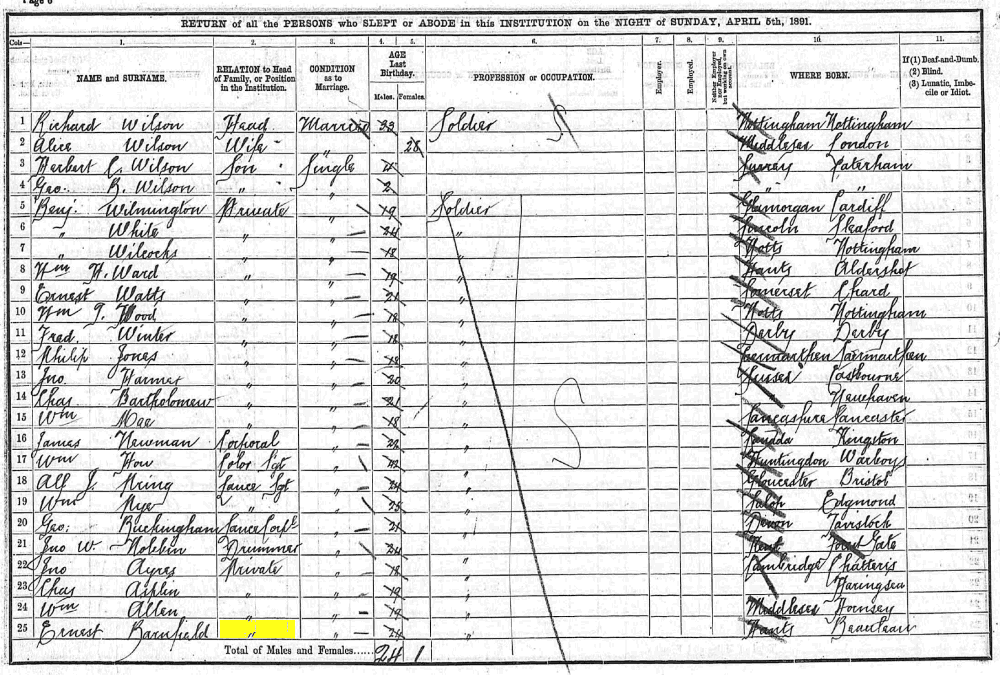 Page 6
RETURN of all the PERSONS who SLEPT or ABODE in this INSTITUTION on the NIGHT of SUNDAY, APRIL 5th, 1891.
Cols— 1. 2. 3. 4. 5. 6. 7. 8. 9. 10. 11.
NAME and SURNAME. RELATION to Head of Family, or Position in the Institution. CONDITION as to Marriage. AGE Last Birthday. Males. Females. PROFESSION or OCCUPATION. Employer. Employed. Neither Employer nor Employed, but working on own account. WHERE BORN. If (1) Deaf-and-Dumb. (2) Blind. (3) Lunatic, Imbecile or Idiot.
1 Richard Wilson Head Married 33 Soldier Nottingham Nottingham
2 Alice Wilson Wife " 28 Middlesex London
3 Herbert C. Wilson Son Single 4 Surrey Caterham
4 Geo. R. Wilson " " 2 " "
5 Benj. Wilmington Private " 19 Soldier Glamorgan Cardiff
6 " White " " 24 " Lincoln Sleaford
7 " Wilcocks " " 18 " Notts Nottingham
8 Wm H. Ward " " 19 " Hants Aldershot
9 Ernest Watts " " 21 " Somerset Chard
10 Wm T. Wood " " 18 " Notts Nottingham
11 Fred. Winter " " 18 " Derby Derby
12 Philip Jones " " 18 " Caermarthen Caermarthen
13 Jno. Harmer " " 20 " Sussex Eastbourne
14 Chas Bartholomew " " 21 " Newhaven
15 Wm Mae " " 18 " Lancashire Lancaster
16 James Newman Corporal " 22 " Kingston
17 Wm How Color Sgt " 42 " Huntingdon Warboys
18 Alf J. Lance Sgt " 24 " Gloucester Bristol
19 Wm Nye " " 25 " Salop Edgmond
20 Geo: Buckingham Lance Corpl " 21 " Devon Tavistock
21 Jno W. Drummer " 24 " Kent Forest Gate
22 Jno Ayres Private " 18 " Cambridge Chatteris
23 Chas " " 19 "
24 Wm Allen " " 19 " Middlesex Hornsey
25 Ernest Barnfield " " 24 " Hants
Total of Males and Females...... 24 1